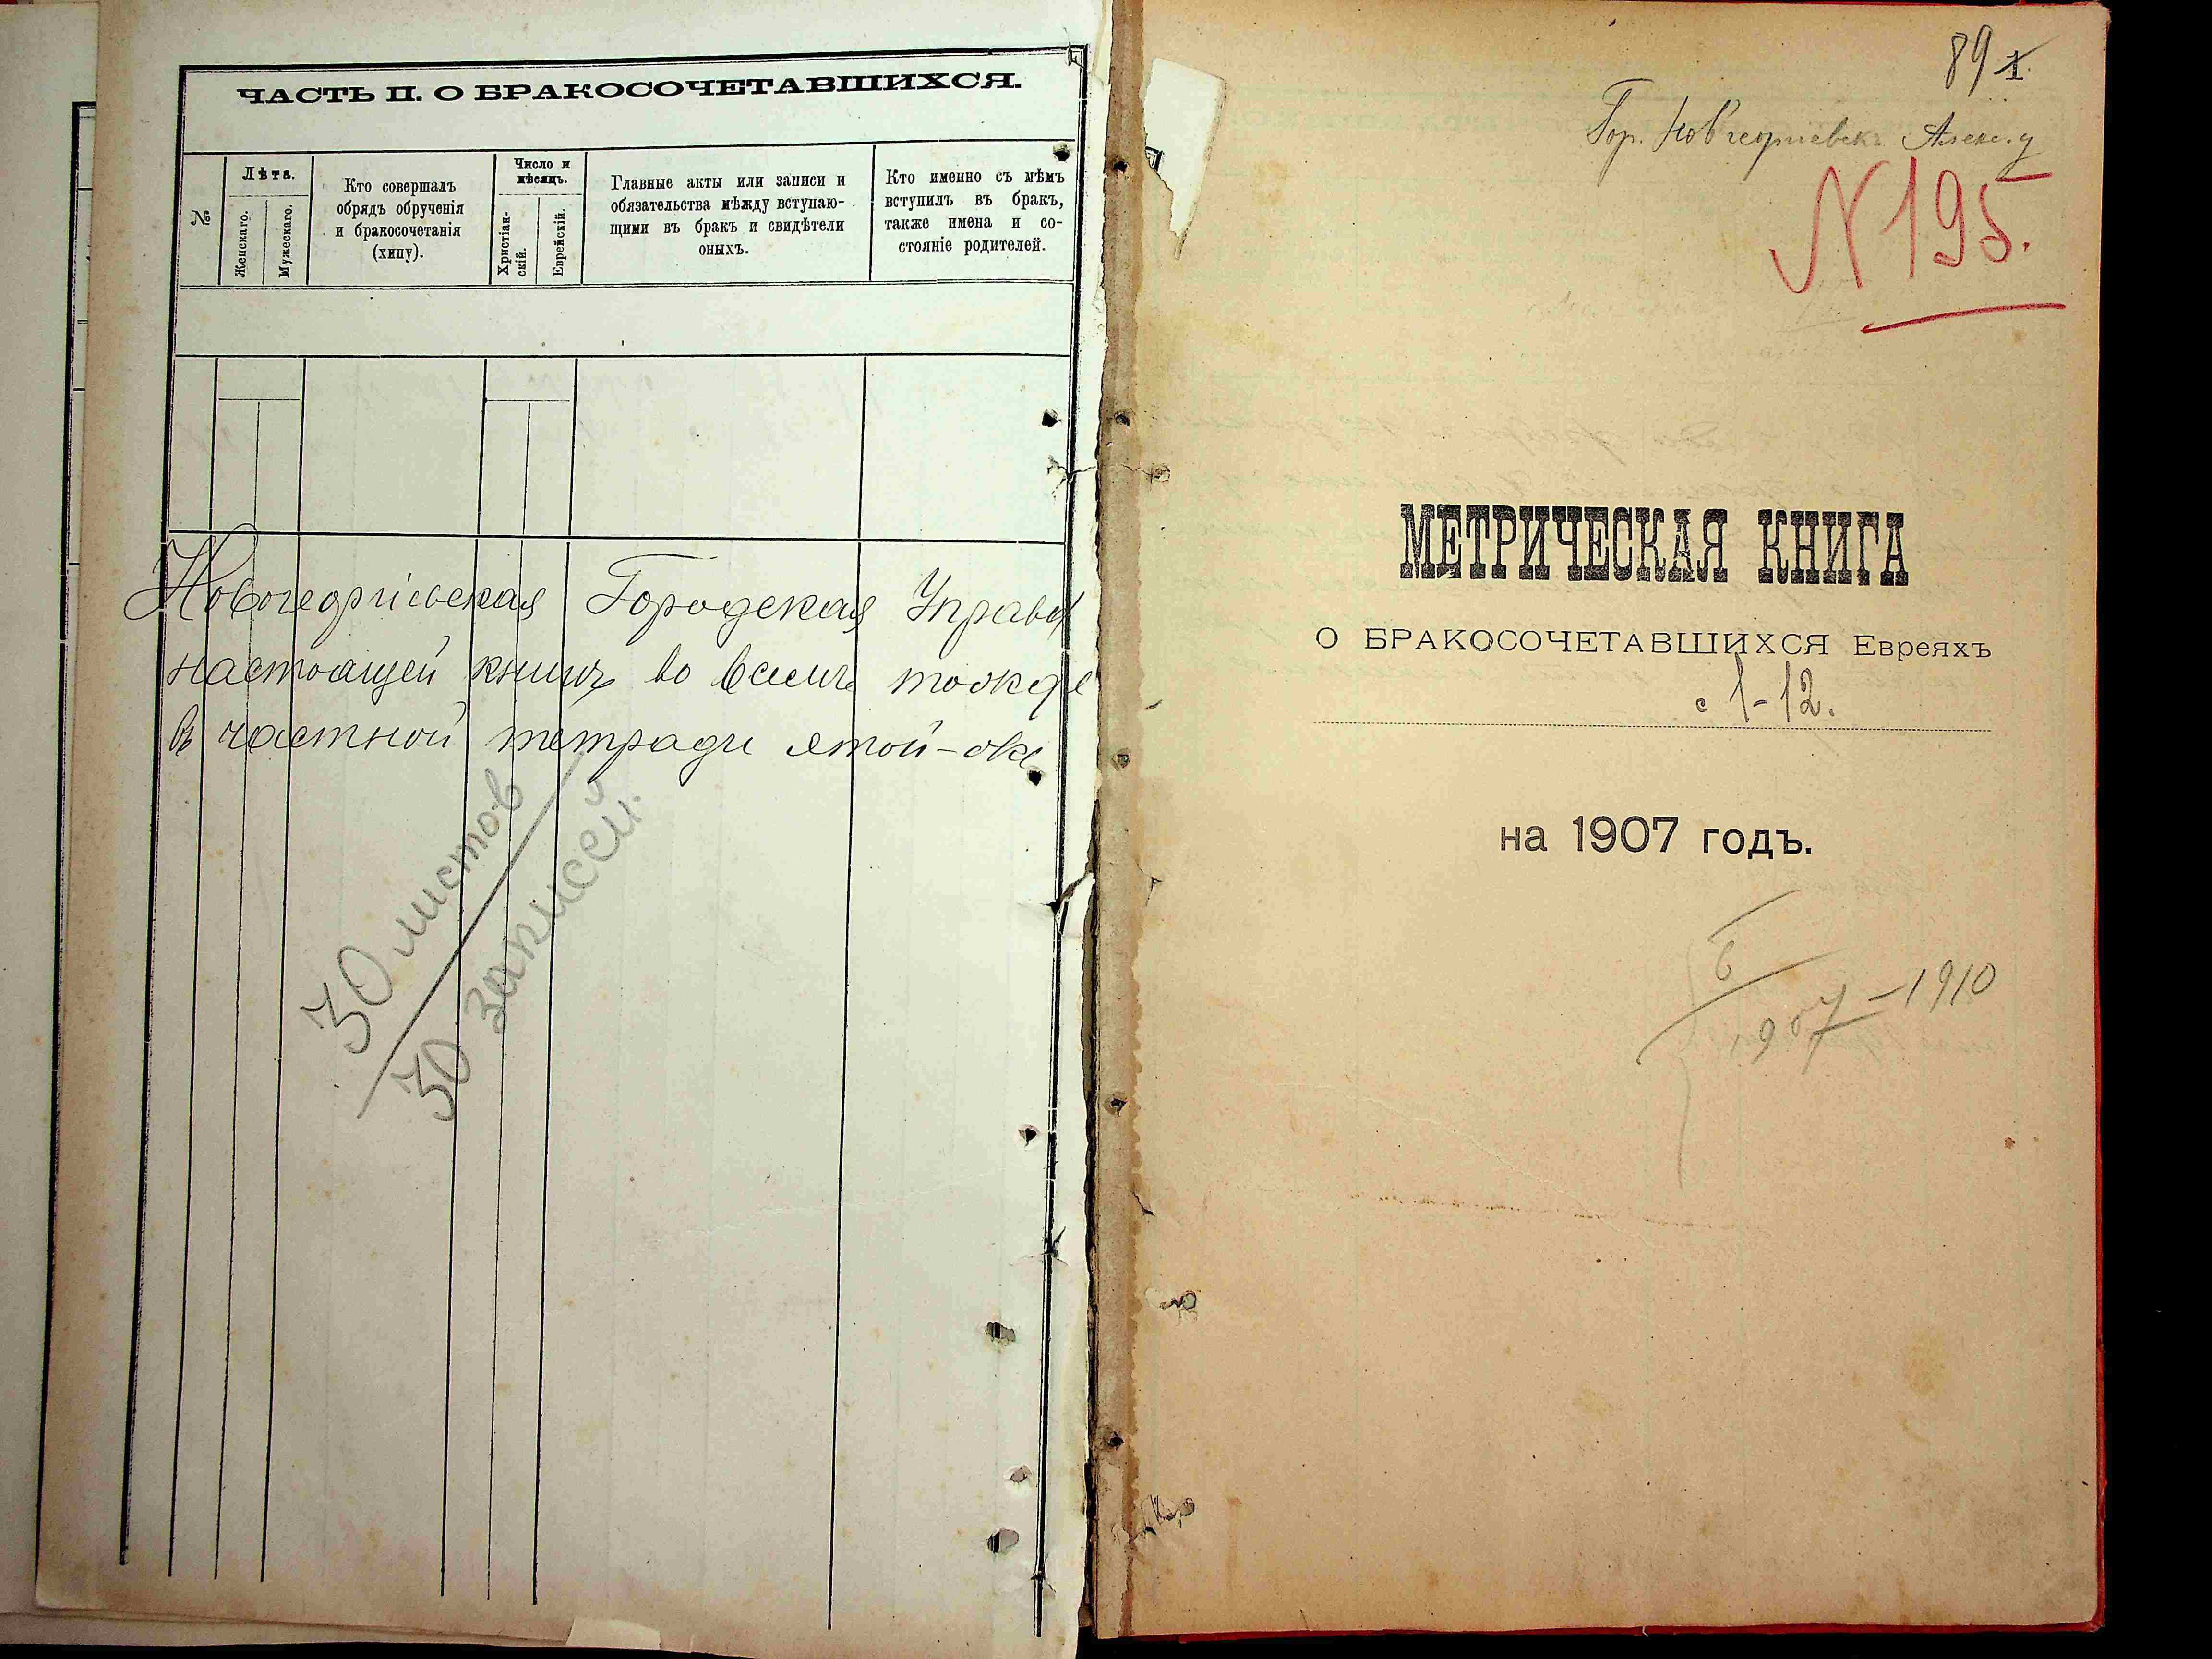 ЧАСТЬ II. О БРАКОСОЧЕТАВШИХСЯ.
№
Лѣта.
Женскаго.
Мужескаго.
Кто совершалъ
обрядъ обрученія
и бракосочетанія
(хипу).
Число и
мѣсяцъ.
Христіан-
скій.
Еврейскій.
Главные акты или записи и
обязательства мѣжду вступаю-
щими въ бракъ и свидѣтели
оныхъ.
Кто именно съ мѣмъ
вступилъ въ бракъ,
также имена и со-
стояніе родителей.
Новогеоргіевская Городская Управа
настоящей книги во всемъ
въ частной тетради
30 листов
30 записей
89 1.
Гор. Новгеоргиевск Алекс. у
N 195.
МЕТРИЧЕСКАЯ КНИГА
О БРАКОСОЧЕТАВШИХСЯ Евреяхъ
с 1-12.
на 1907 годъ.
1907-1910